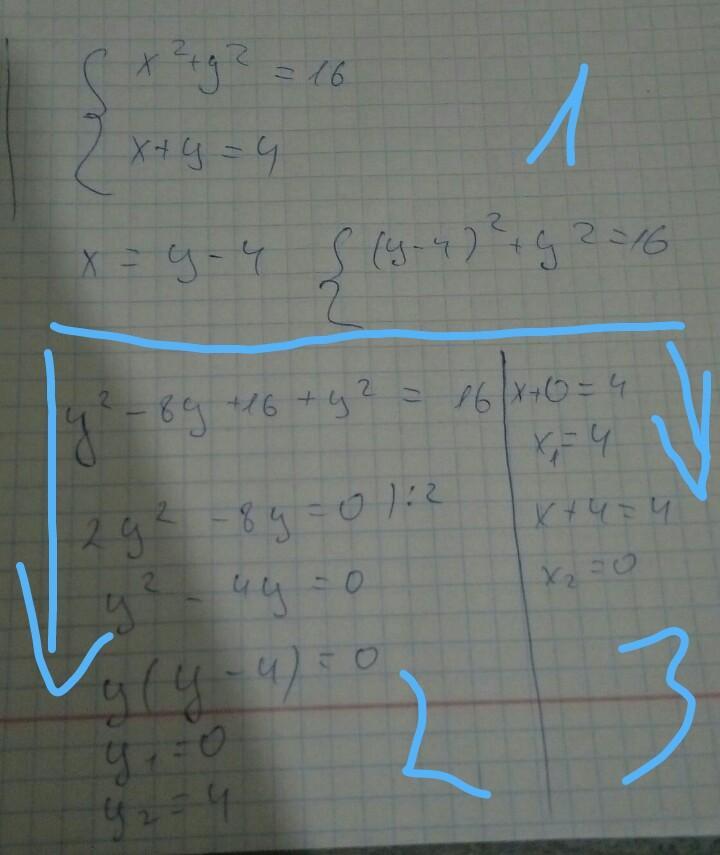 x²+y² = 16
x+y = 4
1
x = y - 4 { (y-4)² + y² = 16
y² - 8y + 16 + y² = 16
2y² - 8y = 0 ):2
y² - 4y = 0
y(y-4) = 0
y₁ = 0
y₂ = 4
2
x+0 = 4
x₁ = 4
x+4 = 4
x₂ = 0
3